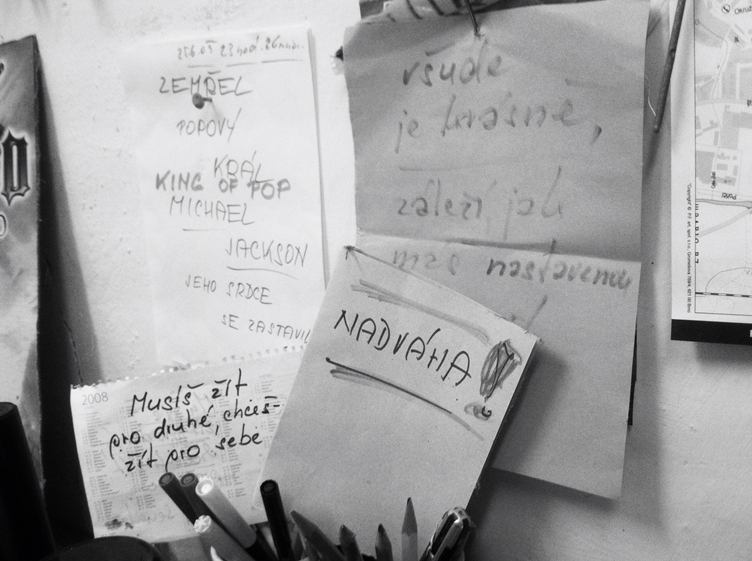 ZEMŘEL
POPOVÝ
KRÁL
KING OF POP
MICHAEL
JACKSON
JEHO SRDCE
SE ZASTAVIL
všude
je krásně,
záleží jak
máš nastavenou
NADVÁHA
2008
Musíš žít
pro druhé, chceš-
žít pro sebe